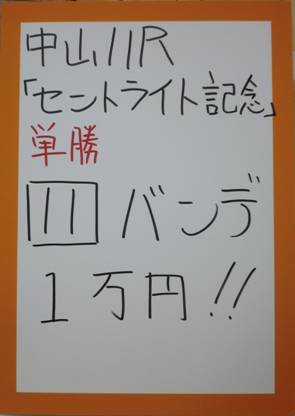 中山11R
「セントライト記念」
単勝
11 バンデ
1万円!!